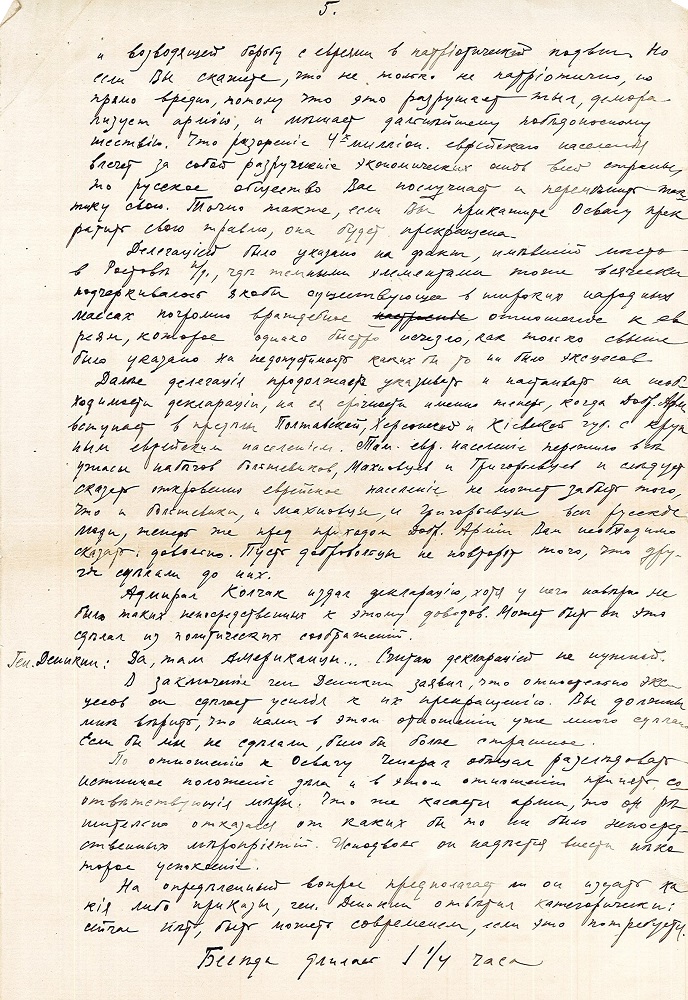 5.
и возводящей борьбу с евреями в патріотическій подвиг. Но
если Вы скажете, что не только не патріотично, но
прямо вредно, потому что это разрушает тыл, демора-
лизует армію, и мешает дальнейшему победоносному
шествію. Что разореніе 4х милліон. еврейскаго населенія
влечет за собой разрушеніе экономических основ всей страны,
то русское общество Вас послушает и переменит так-
тику свою. Точно также, если Вы прикажите Освагу прек-
ратить свою травлю, она будет прекращена.
Делегаціей было указано на факт, имевшій место
в Ростове н/Д., где темными элементами тоже всячески
подчеркивалось якобы существующее в широких народных
массах погромно враждебное настроеніе отношеніе к ев-
реям, которое однако быстро исчезло, как только свыше
было указано на недопустимость каких бы то ни было эксцесов.
Далее делегація продолжает указывать и настаивать на необ-
ходимости деклараціи, на ея срочности именно теперь, когда Добр. Армія
вступает в пределы Полтавской, Херсонской и Кіевской губ. с круп-
ным еврейским населеніем. Там евр. населеніе пережило все
ужасы набегов большевиков, Махновцев и Григорьевцев и следует
сказать откровенно еврейское населеніе не может забыть того,
что и большевики, и махновцы, и григорьевцы все русскіе
люди, теперь же пред приходом Добр. Арміи Вам необходимо
сказать: довольно. Пусть добровольцы не повторят того, что дру-
гіе сделали до них.
Адмирал Колчак издал декларацію, хотя у него наверно не
было таких непосредственных к этому доводов. Может быть он это
сделал из политических соображеній.
Ген. Деникин: Да, там Американцы... Считаю декларацію не нужной.
В заключеніе ген Деникин заявил, что относительно экс-
цесов он сделает усилія к их прекращенію. Вы должны
мне верить, что нами в этом отношеніи уже много сделано
Если бы мы не сделали, было бы более страшное.
По отношенію к Освагу генерал обещал разследовать
истинное положеніе дела и в этом отношеніи принять со-
ответствующія меры. Что же касается арміи, то он ре-
шительно отказался от каких бы то ни было непосред-
ственных мероприятій. Исподволь он надеется внести неко-
торое успокоеніе.
На определенный вопрос предполагает ли он издать ка-
кія либо приказы, ген. Деникин ответил категорически:
сейчас нет, быть может современем, если это потребуется.
Беседа длилась 1 1/4 часа